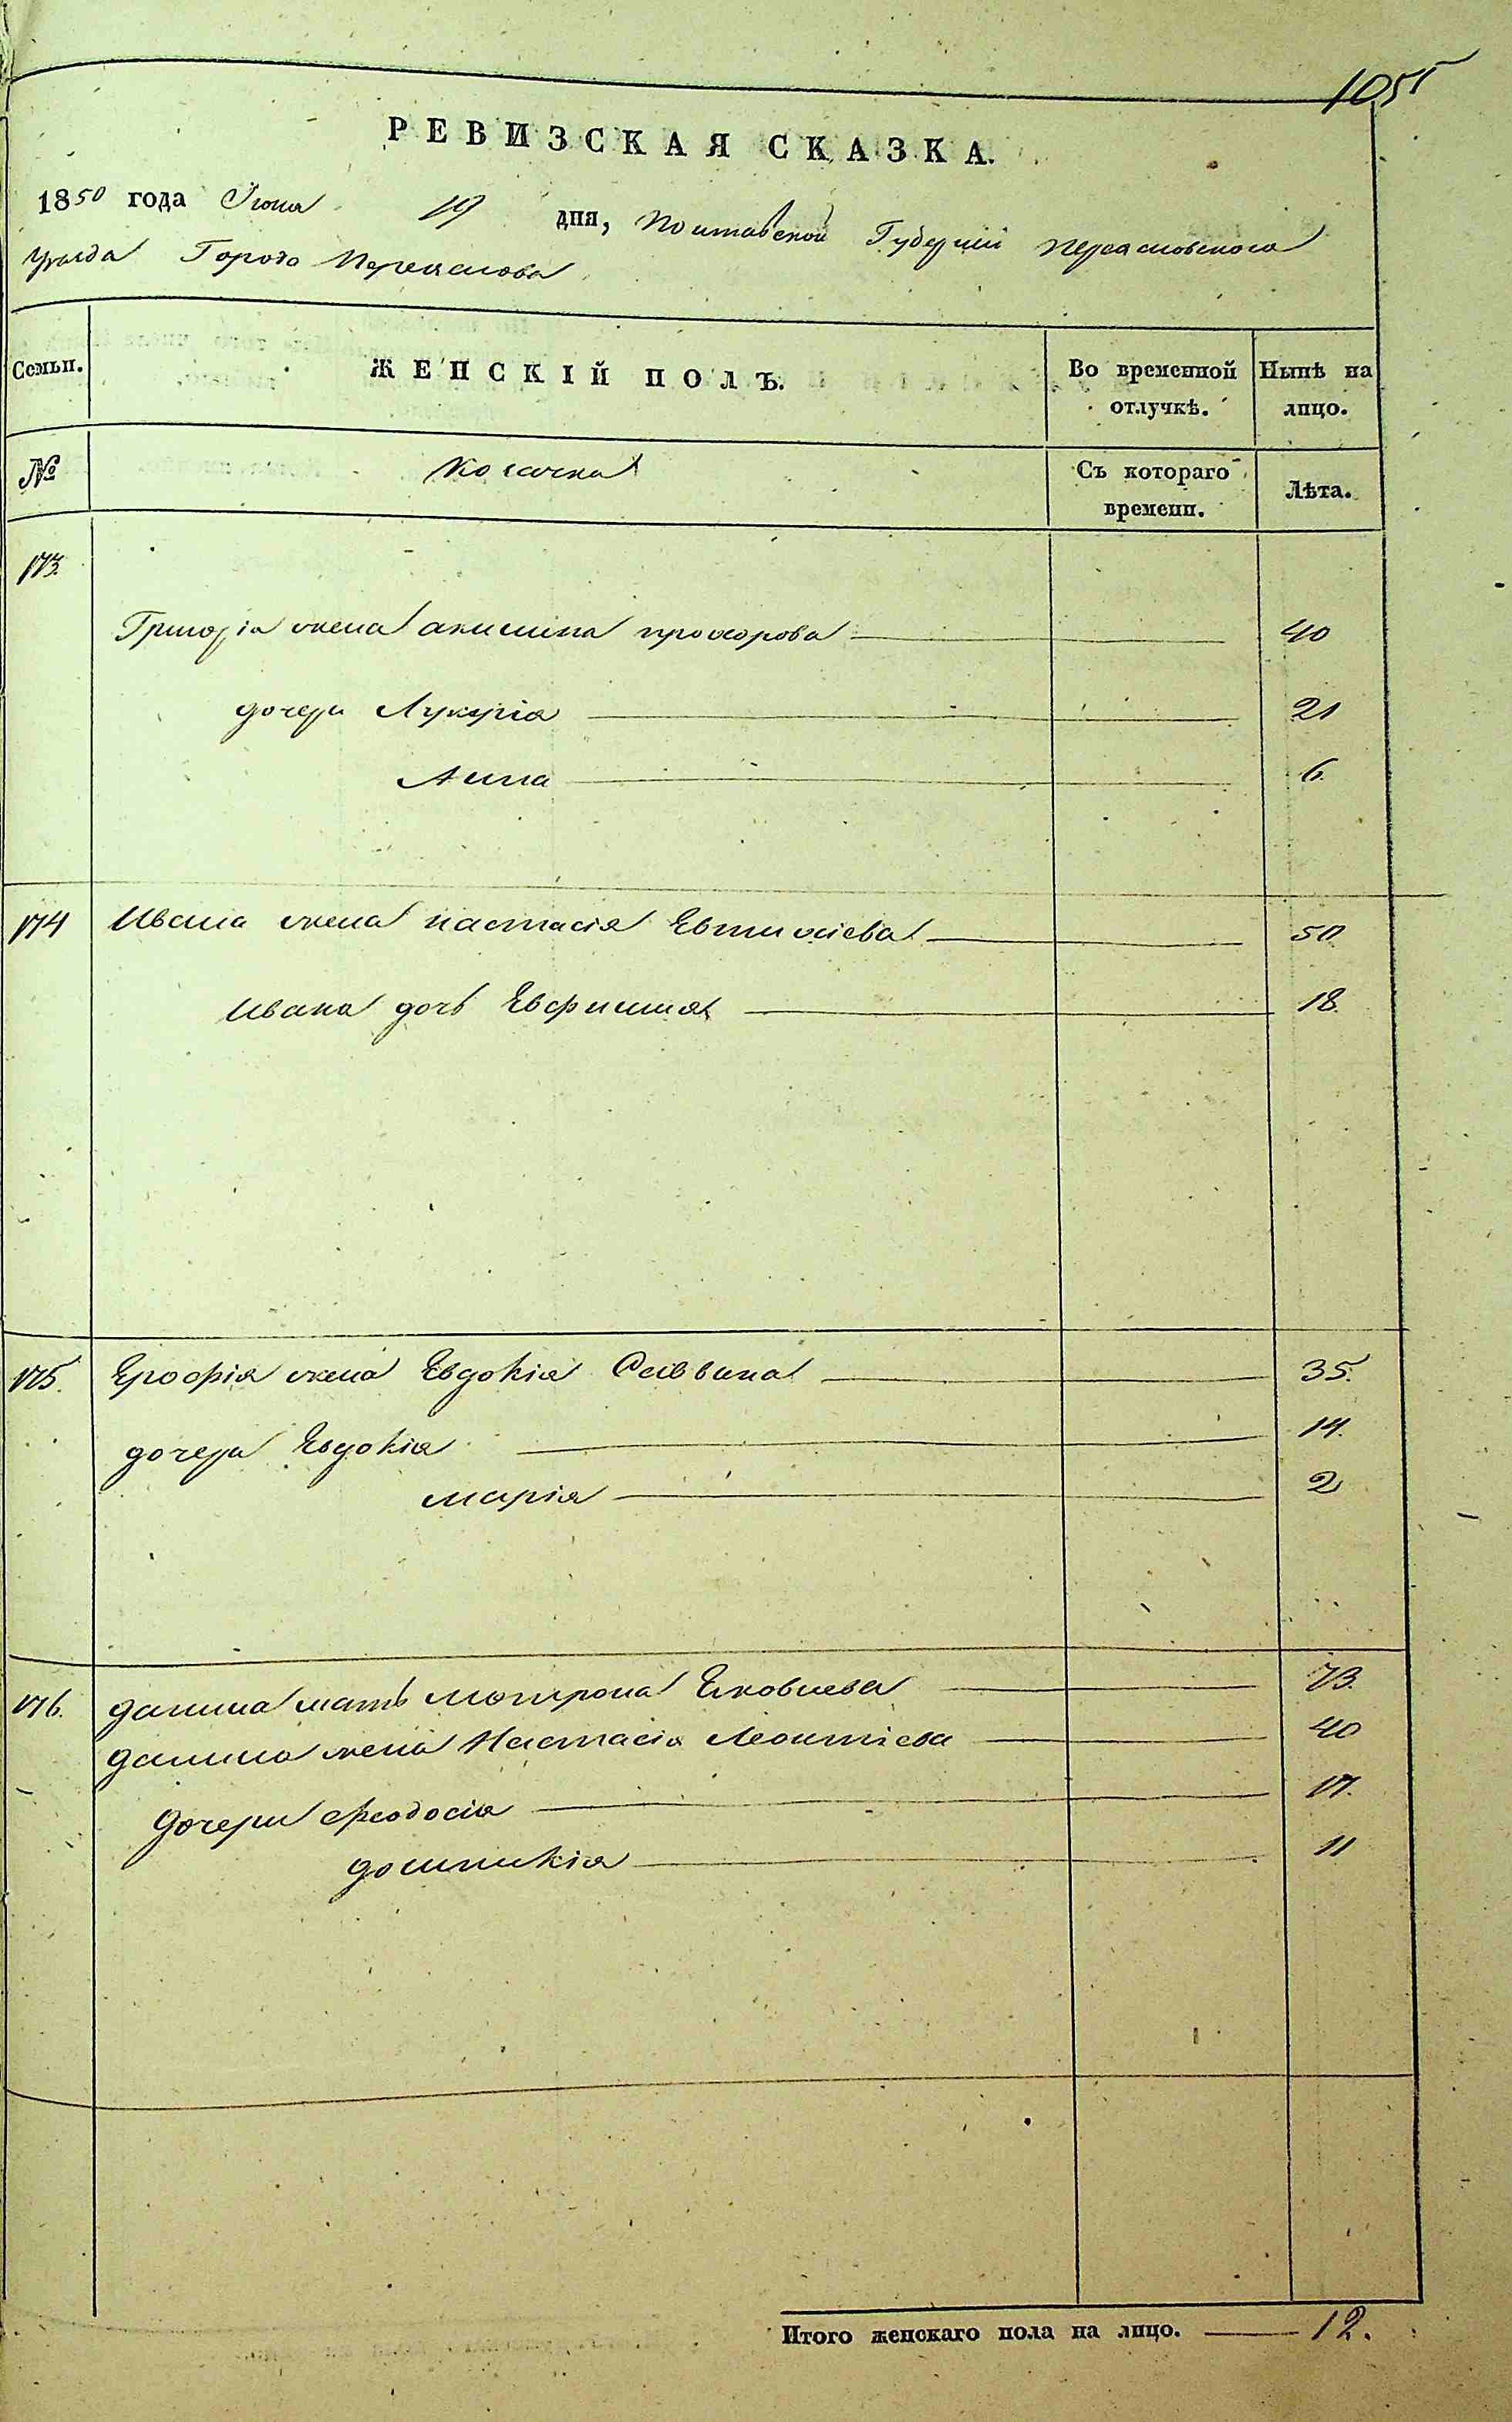 1055
РЕВИЗСКАЯ СКАЗКА.
1850 года Июня 19 дня, Полтавской Губерніи Переясловского
уезда Города Переяслова
Семьи. ЖЕНСКІЙ ПОЛЪ. Во временной отлучкѣ. Нынѣ на лицо.
№ Козачка Съ котораго времени. Лѣта.
173.
Григорія жена акилина прохорова 40
дочери Лукерія 21
Анна 6.
174 Ивана жена настасія Евтихіева 50
Ивана дочь Евфимия 18.
175. Ерофія жена Евдокія Саввина 35.
дочери Евдокія 14.
марія 2
176. данила мать мотрона Яковлева 73.
данила жена Настасія Леонтіева 40
Дочери Феодосія 17.
домникія 11
Итого женскаго пола на лицо. 12.